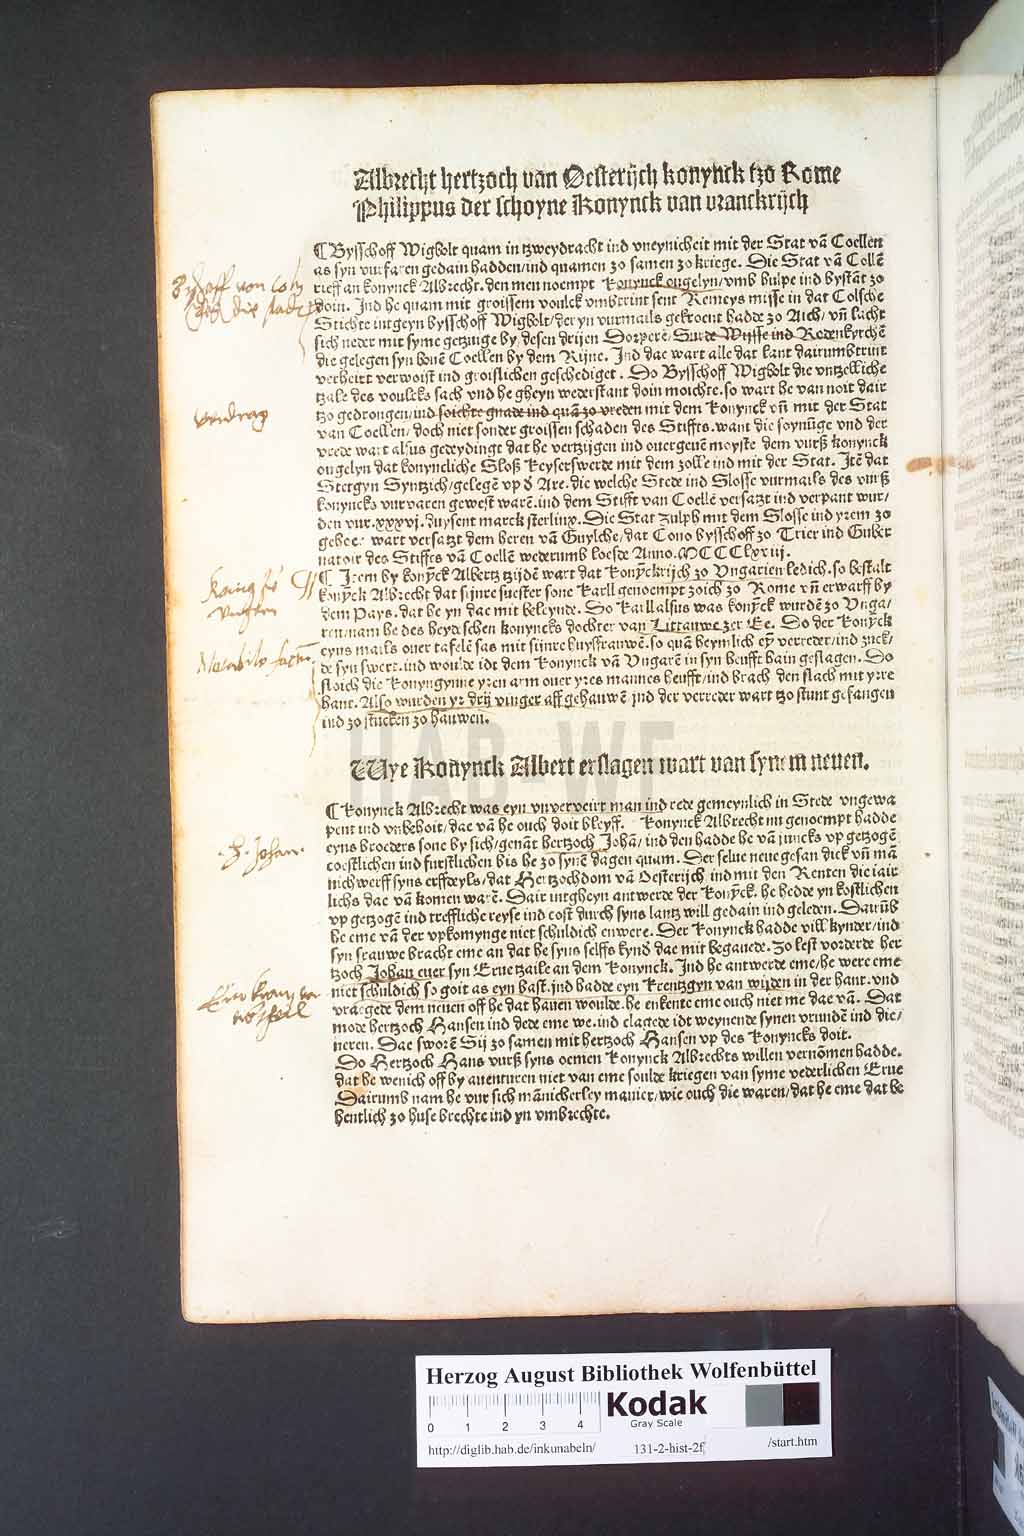 Albrecht hertzoch van Oesterijch konynck tzo Rome
Philippus der schoyne Konynck van vranckrijch
¶ Bysschoff Wigbolt quam in tzweydracht ind vneynicheit mit der Stat vā Coellen
as syn vurfaren gedain hadden/ind quamen zo samen zo kriege. Die Stat vā Collē
rieff an konynck Albrecht. den men noempt Konynck ougelyn/vmb hulpe ind bystāt zo
doin. Ind he quam mit groissem voulck vmbtrint sent Remeys misse in dat Colsche
Stichte intgeyn bysschoff Wigbolt/der yn vurmails gekroent hadde zo Aich/vñ lacht
sich neder mit syme getzuge by desen drijen Dorperē/Surde Wijsse ind Rodenkyrchē
die gelegen syn bouē Coellen by dem Rijne. Ind dae wart alle dat lant dairumbtrint
verheirt verwoist ind groislichen geschediget. Do Bysschoff Wigbolt die vntzelliche
tzale des voulcks sach vnd he gheyn wederstant doin moichte. so wart he van noit dair
tzo gedrongen/ind soichte gnade ind quā zo vreden mit dem Konynck vñ mit der Stat
van Coellen/doch niet sonder groissen schaden des Stiffts. want die soynūge vnd der
vrede wart alsus gedeydingt dat he vertzijgen ind ouergeuē moyste dem vurß konynck
ougelyn dat konyncliche Sloß Keyserswerde mit dem zolle ind mit der Stat. Itē dat
Stetgyn Syntzich/gelegē vp d Are. die welche Stede ind Slosse vurmails des vurß
konyncks vurvaren gewest warē. ind dem Stifft van Coellē versatzt ind verpant wur/
den vur .xxxvj. duysent marck sterlinx. Die Stat Zulph mit dem Slosse ind yrem zo
wart versatzt dem heren vā Guylche/dat Cono bysschoff zo Trier ind Guber
natoir des Stifftes vā Coellē wederumb loesde Anno. MCCCLxviij.
¶ Item by konÿck Albertz tzijdē wart dat Konÿckrijch zo Vngarien ledich. so bestalt
konÿck Albrecht dat sijnre suester sone Karll genoempt zoich zo Rome vñ erwarff by
dem Pays. dat he yn dae mit beleynde. Do Karll alsus was konÿck wurdē zo Vnga/
ren/nam he des heydschen konyncks dochter van Littauwe zer Ee. Do der Konÿck
eyns mails ouer tafelē sas mit sijnre huysfrauwē. so quā heymlich eÿ verreder/ind zuck/
de syn swert. ind woulde idt dem Konynck vā Vngarē in syn heufft hain geslagen. Do
sloich die Konyngynne yren arm ouer yres mannes heufft/ind brach den slach mit yrre
hant. Also wurden yr drij vinger aff gehauwē ind der verreder wart tzo stunt gefangen
ind zo stucken zo hauwen.
Wye Konynck Albert erslagen wart van synem neuen.
¶ Konynck Albrecht was eyn vnverveirt man ind rede gemeynlich in Stede vngewa
pent ind vnbehoit/dae vā he ouch doit bleyff. Konynck Albrecht nu genoempt hadde
eyns broeders sone by sich/genāt hertzoch Johā/ind den hadde he vā juncks vp getzogē
coestlichen ind furstlichen bis he zo synē dagen quam. Der selue neue gesan dick vñ mā
nichwerff syns erffdeyls/dat Hertzochdom vā Oesterijch ind mit den Renten die iair
lichs dae vā komen warē. Dair intgheyn antwerde der Konÿck. he hedde yn kostlichen
vp getzogē ind treffliche reyse ind cost durch syns lantz will gedain ind geleden. Dairūb
he eme vā der vpkomynge niet schuldich enwere. Der Konynck hadde vill kynder/ind
syn frauwe bracht eme an dat he syns selffs kynd dae mit begauede. Zo lest vorderde her
tzoch Johan euer syn Eruetzaile an dem Konynck. Ind he antwerde eme/he were eme
niet schuldich so goit as eyn bast. ind hadde eyn Krentzgyn van wijden in der hant. vnd
vragede dem neuen off he dat hauen woulde. he enkente eme ouch niet me dae vā. Dat
mode hertzoch Hansen ind dede eme we. ind clagede idt weynende synen vrundē ind die/
neren. Dae sworē Sij zo samen mit hertzoch Hansen vp des Konyncks doit.
Do Hertzoch Hans vurß syns oemen Konynck Albrechts willen vernōmen hadde.
dat he wenich off by auenturen niet van eme soulde kriegen van syme vederlichen Erue
Dairumb nam he vur sich mānicherley manier/wie ouch die waren/dat he eme dat be
hentlich zo huse brechte ind yn vmbrechte.
Bischoff von Coln
vordrag
Konig zu
Vngern
H. Johan.
HAB-WF
Herzog August Bibliothek Wolfenbüttel
0 1 2 3 4
Kodak
Gray Scale
http://diglib.hab.de/inkunabeln/ 131-2-hist-2f/ /start.htm